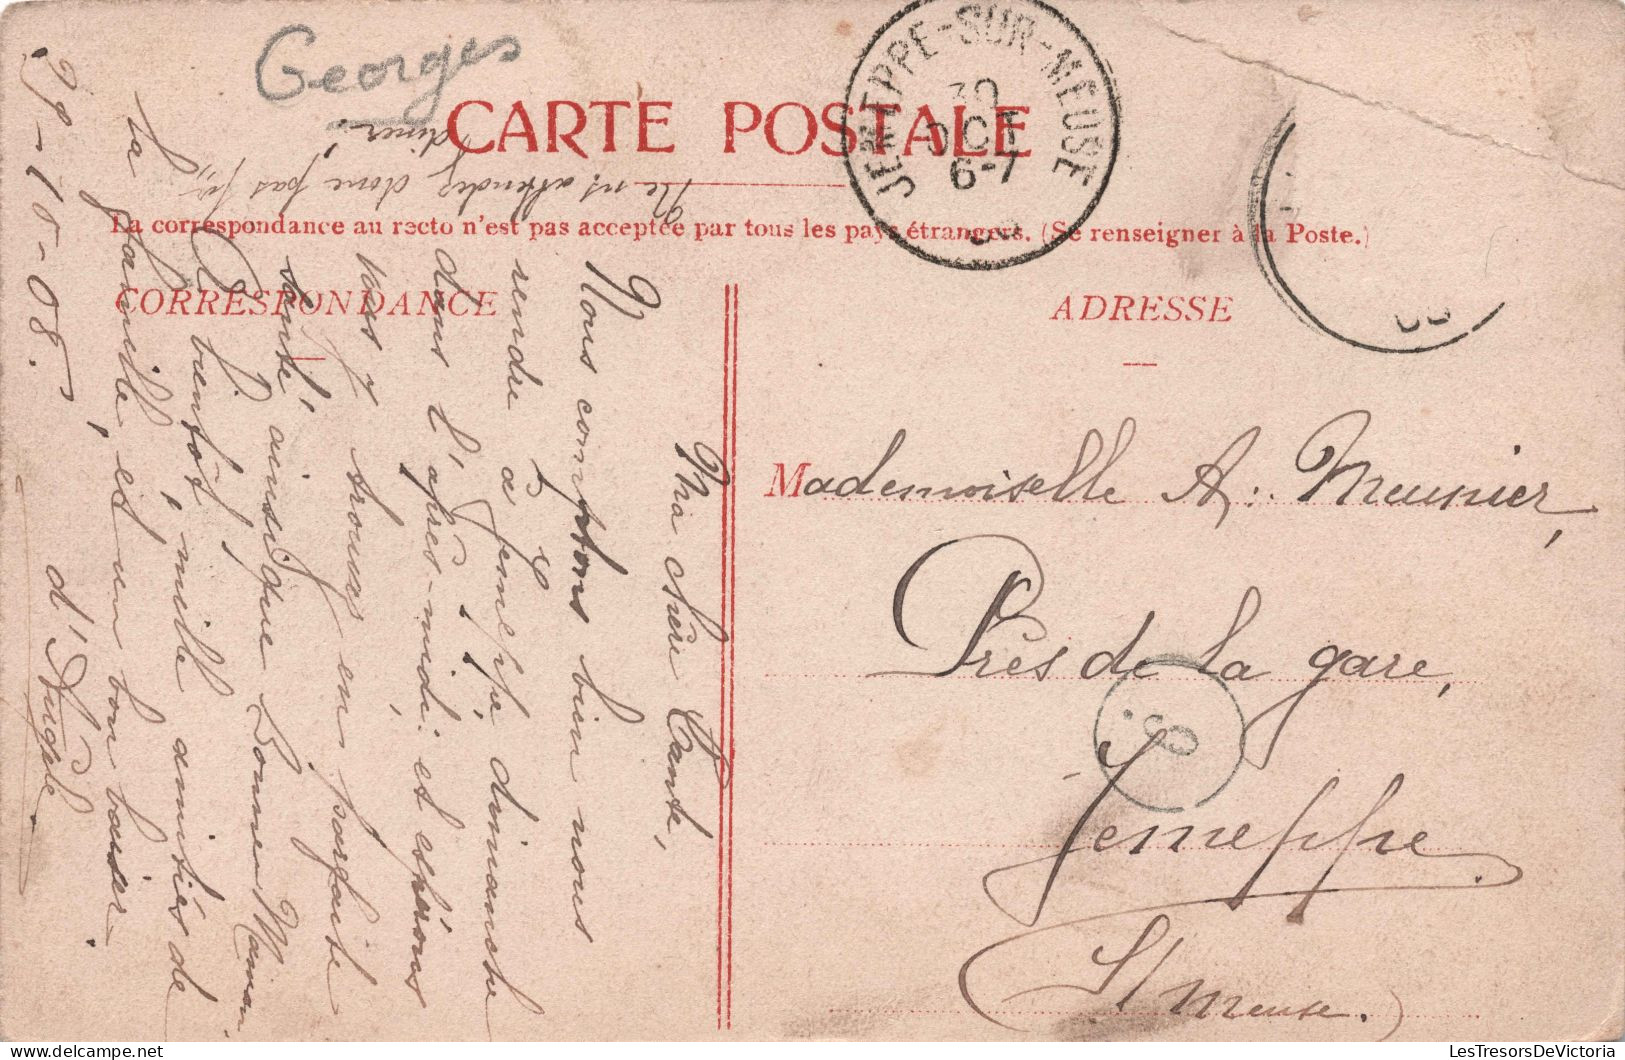 Georges
CARTE POSTALE
JEMEPPE-SUR-MEUSE
30
OCT
6-7
La correspondance au recto n'est pas acceptée par tous les pays étrangers. (Se renseigner à la Poste.)
CORRESPONDANCE
ADRESSE
29-10-08.
Ma chère Tante,
Nous comptons bien nous
rendre à Jemeppe, dimanche
dans l'après-midi et espérons
vous y trouver en parfaite
santé, ainsi que Bonne Maman.
A bientôt, mille amitiés de
la famille, et un bon baiser
d'Angèle.
Ne ns attendez donc pas
dîner.
Mademoiselle A. Meunier,
Près de la gare,
Jemeppe
(S/Meuse.)
8
LesTresorsDeVictoria
LesTresorsDeVictoria.delcampe.net